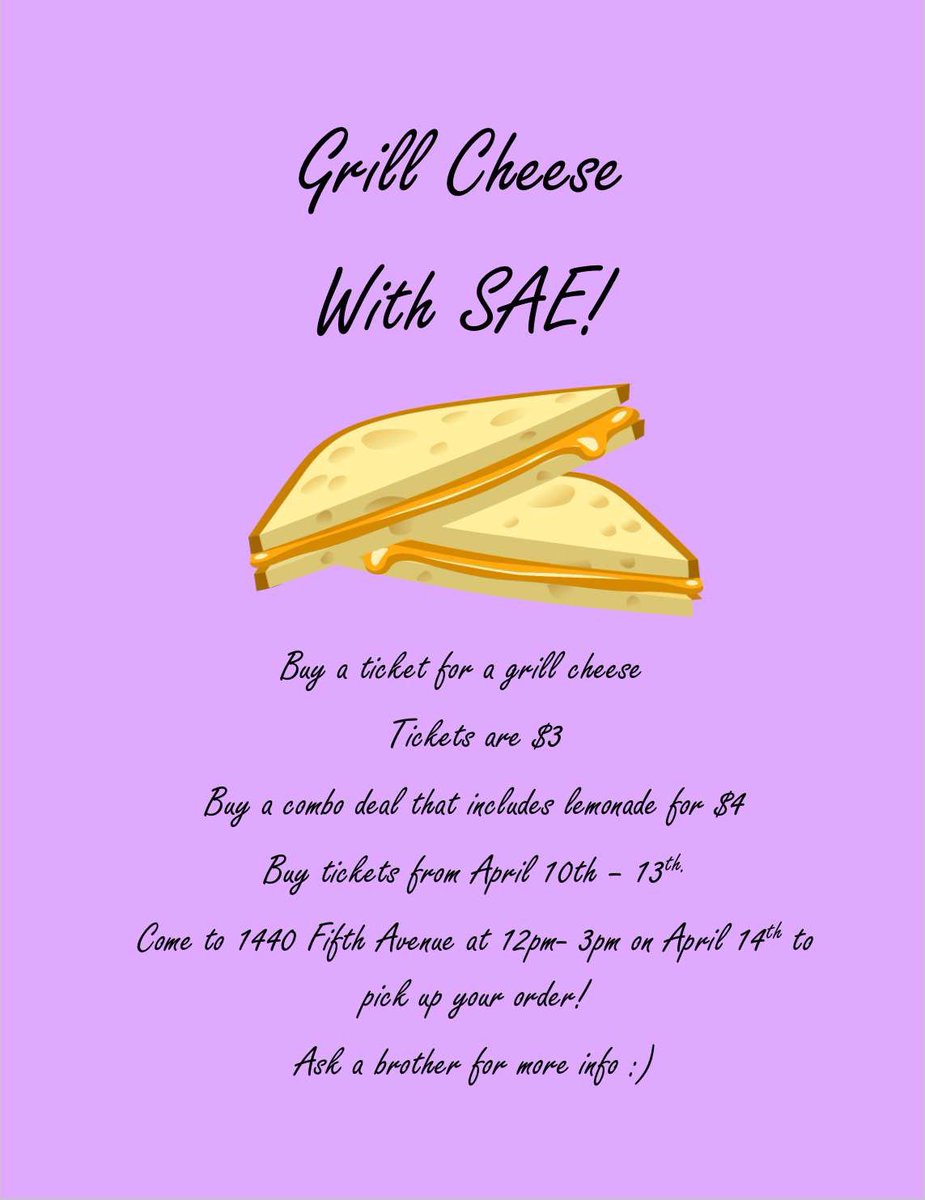 Grill Cheese
With SAE!
Buy a ticket for a grill cheese
Tickets are $3
Buy a combo deal that includes lemonade for $4
Buy tickets from April 10th – 13th.
Come to 1440 Fifth Avenue at 12pm- 3pm on April 14th to
pick up your order!
Ask a brother for more info :)